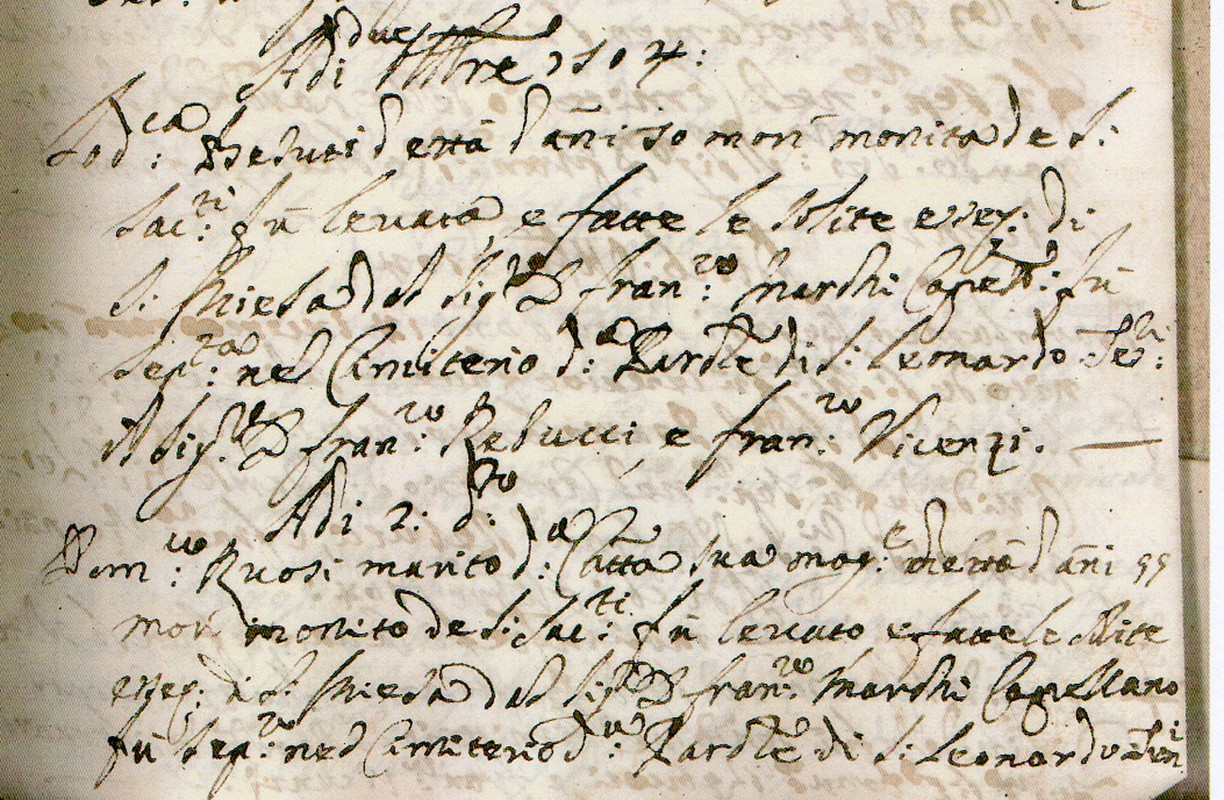 Adi due 7bre 1704:
Lod:ca Beluti d'ettà d'añi 50 mori monita de S:
Sac:ti fù levata, e fatte le solite eseq: di
S: Chiesa dal Sig:re D Fran:co Marchi Capell: fù
sep:ta nel Cimiterio d:a Parchle di S: Leonardo Te:
il Sig:re D Fran:co Rebucci, e Fran:co Vicenzi.
Adi 2: d:to
Dom:co Ruosi marito d:a Catta sua mog:e d'ettà d'añi 55
mori monito de S: Sac:ti fù levato e fatte le solite
eseq: di S: Chiesa dal Sig:re D Fran:co Marchi Capellano
fù sep:to nel Cimiterio d: Parchle di S: Leonardo